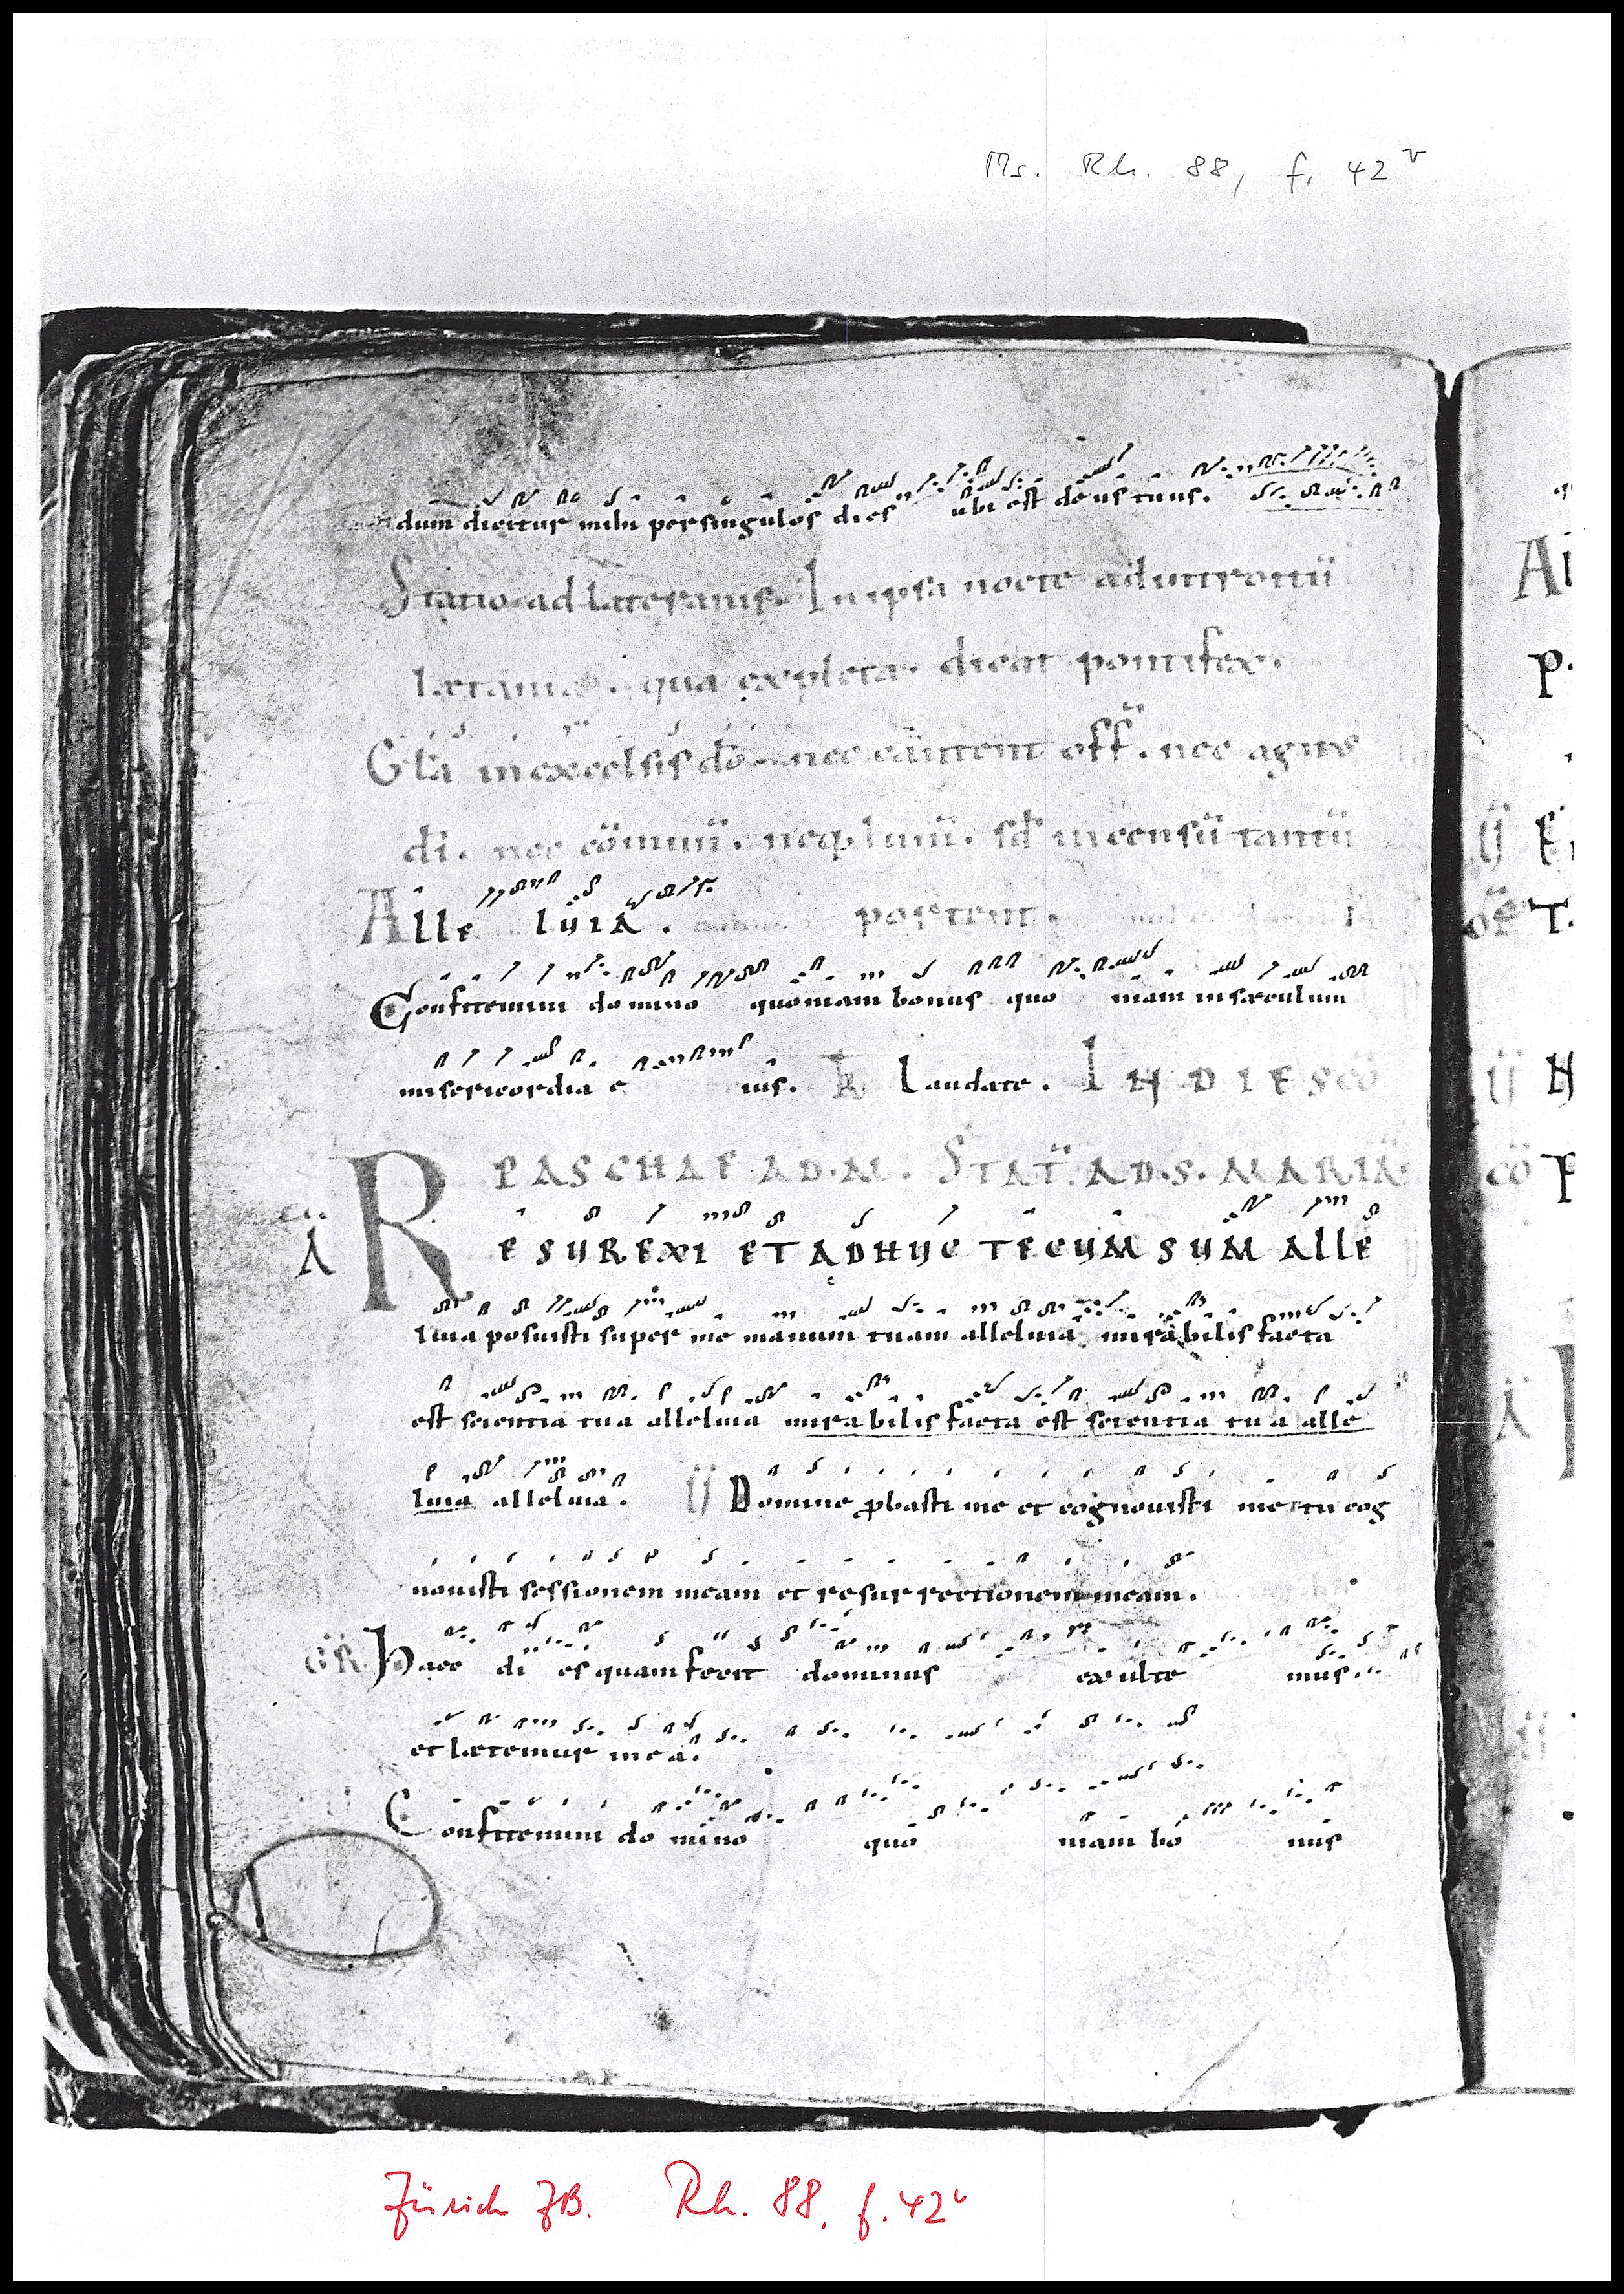 Ms. Rh. 88, f. 42v
dum dicitur mihi per singulos dies ubi est deus tuus.
Statio ad Lateranis. In ipsa nocte ad introitū
lætania. qua expleta. dicat pontifex.
Glā in excelsis dō nec cantent off. nec agnus
di. nec cōmuñ. neq; lumī. sd incensū tantū
Alle luia. portent.
Confitemini domino quoniam bonus quo niam in sæculum
misericordia e ius. Laudate. IN DIE SCO
PASCHAE AD. M. STAT. AD. S. MARIA
A RESUREXI ET ADHUC TECUM SUM ALLE
luia posuisti super me manum tuam alleluia mirabilis facta
est scientia tua alleluia mirabilis facta est scientia tua alle
luia alleluia. Domine pbasti me et cognovisti me tu cog
novisti sessionem meam et resurrectionem meam.
GR. Haec di es quam fecit dominus ex ulte mus.
et lætemur in ea.
Confitemini do mino quo niam bo nus
Zürich ZB. Rh. 88, f. 42v